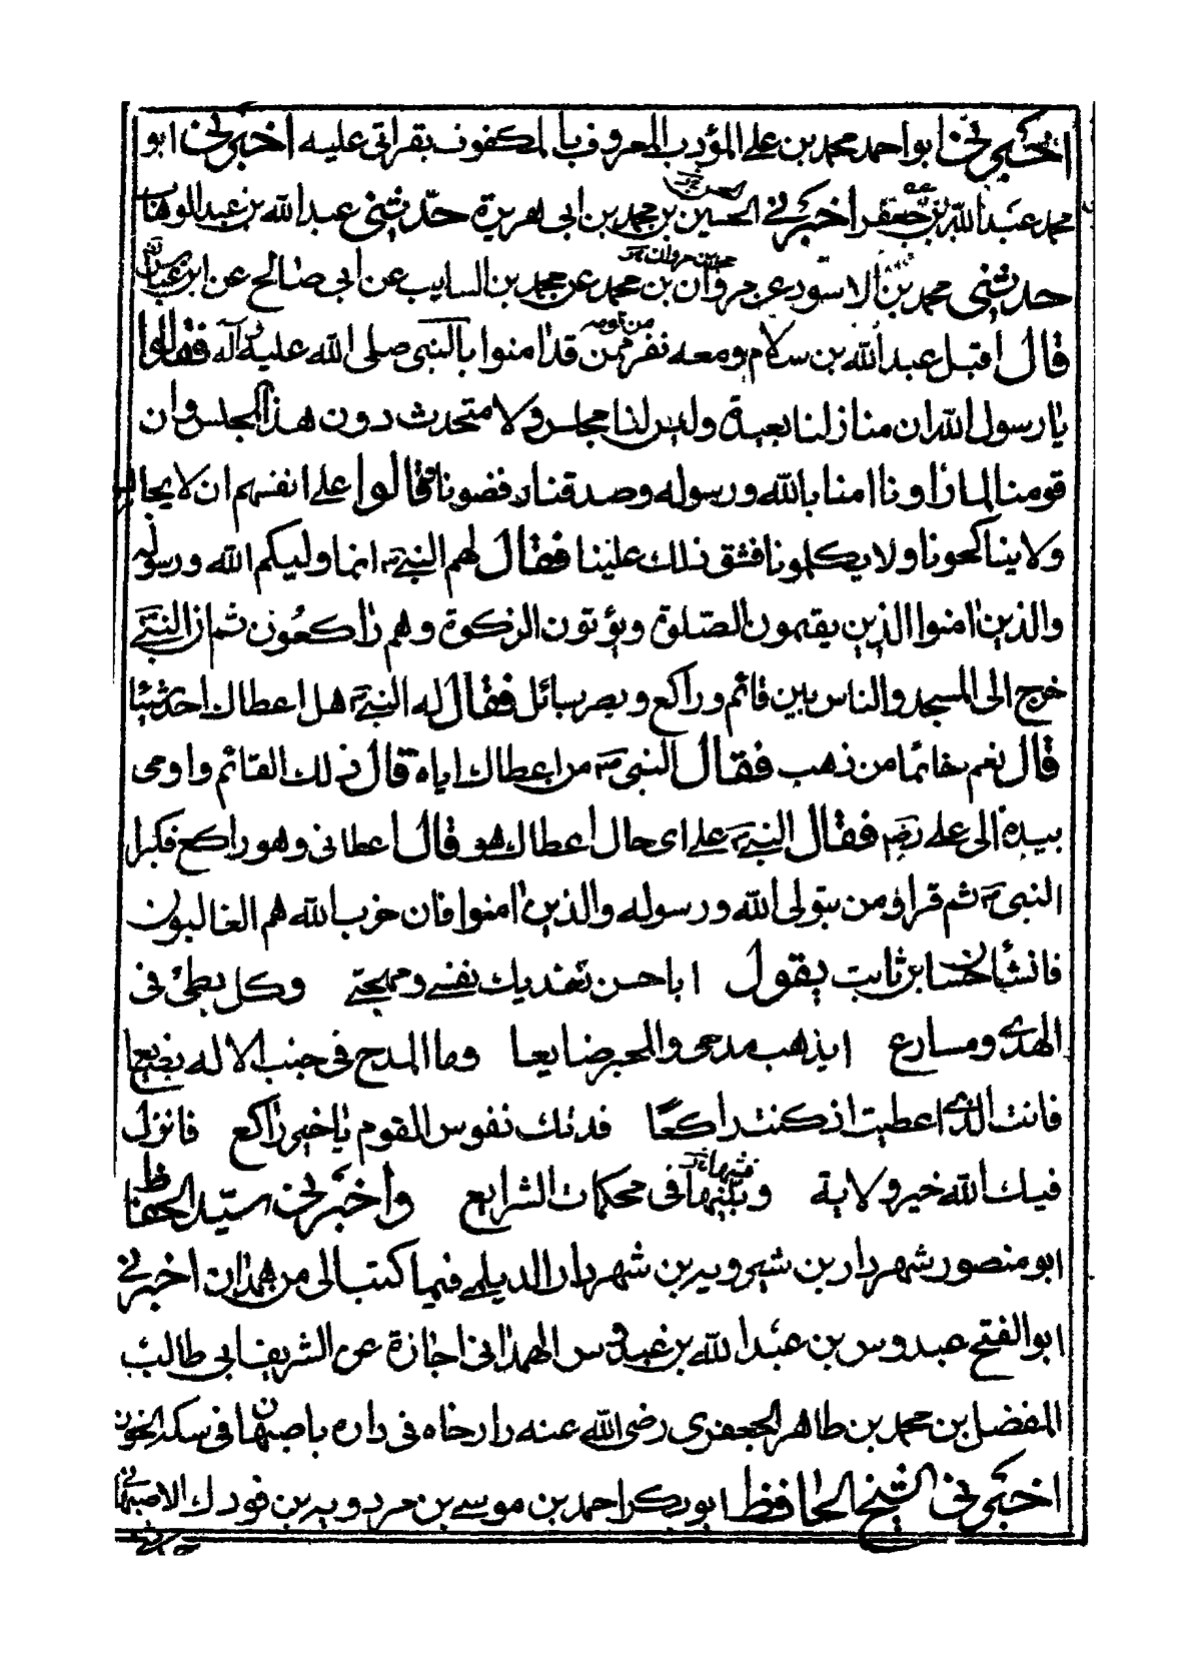 اخبرنى ابو احمد محمد بن على المؤدب المعروف بالمكفوف بقراتى عليه اخبرنى ابو
محمد عبد الله بن جعفر اخبرنى الحسين بن محمد بن ابى هريرة حدثنى عبد الله بن عبد الوهاب
حدثنى محمد بن الاسود عن مروان بن محمد عن محمد بن السايب عن ابى صالح عن ابن عباس
قال اقبل عبد الله بن سلام ومعه نفر من قومه ممن قد امنوا بالنبى صلى الله عليه وآله فقالوا
يا رسول الله ان منازلنا بعيدة وليس لنا مجلس ولا متحدث دون هذا المجلس وان
قومنا لما راونا امنا بالله ورسوله وصدقناه رفضونا وقالوا على انفسهم ان لا يجالسو
ولا يناكحونا ولا يكلمونا فشق ذلك علينا فقال لهم النبى انما وليكم الله ورسوله
والذين امنوا الذين يقيمون الصلوة ويؤتون الزكوة وهم راكعون ثم ان النبى
خرج الى المسجد والناس بين قائم وراكع وبصر بسائل فقال له النبى هل اعطاك احد شيئا
قال نعم خاتما من ذهب فقال النبى من اعطاك اياه قال ذلك القائم واومى
بيده الى على فقال النبى على اى حال اعطاك هو قال اعطانى وهو راكع فكبر
النبى ثم قرا ومن يتولى الله ورسوله والذين امنوا فان حزب الله هم الغالبون
فانشا حسان بن ثابت يقول ابا حسن تفديك نفسى ومهجتى وكل بطئ فى
الهدى ومسارع ايذهب مدحى والمحبر ضايعا وما المدح فى جنب الاله بضيع
فانت الذى اعطيت اذ كنت راكعا فدتك نفوس القوم يا خير راكع فانزل
فيك الله خير ولاية وبينها فى محكمات الشرايع واخبرنى سيد الحفاظ
ابو منصور شهردار بن شيرويه بن شهردار الديلمى فيما كتب الى من همدان اخبرنى
ابو الفتح عبدوس بن عبد الله بن عبدوس الهمدانى اجازة عن الشريف ابى طالب
المفضل بن محمد بن طاهر الجعفرى رضى الله عنه وارضاه فى داره باصبهان فى سكة الخوز
اخبرنى الشيخ الحافظ ابو بكر احمد بن موسى بن مردويه بن فورك الاصبهانى